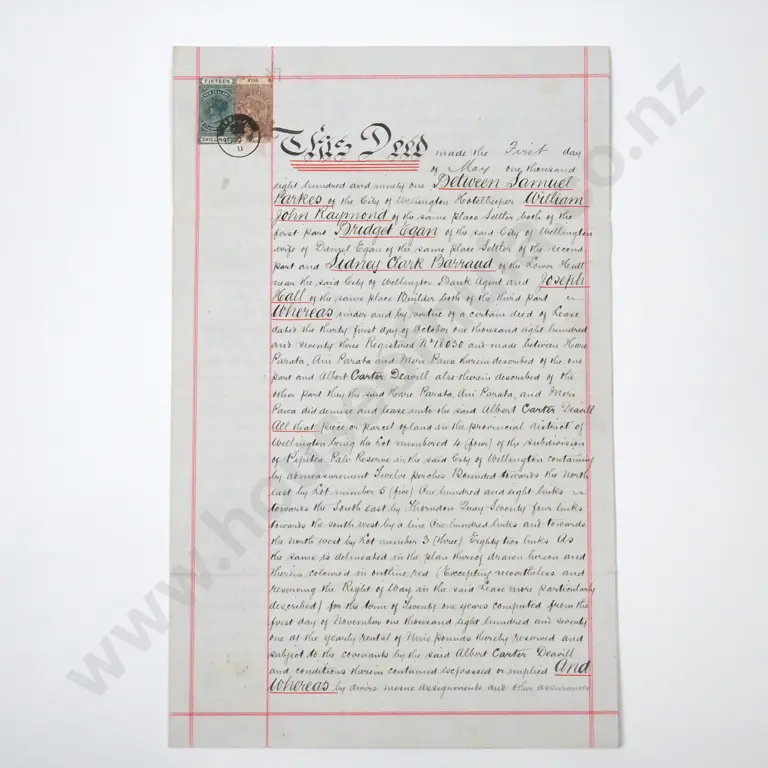 FIFTEEN
SHILLINGS
This Deed made the First day
of May one thousand
eight hundred and ninety one Between Samuel
Parkes of the City of Wellington Hotelkeeper William
John Raymond of the same place Settler both of the
first part Bridget Egan of the said City of Wellington
wife of Daniel Egan of the same place Settler of the second
part and Sidney Clark Barraud of the Lower Hutt
near the said City of Wellington Bank Agent and Joseph
Hall of the same place Builder both of the third part
Whereas under and by virtue of a certain deed of Lease
dated the thirty first day of October one thousand eight hundred
and seventy three Registered No 18030 and made between Hare
Parata, Ani Parata and Meri Pawa therein described of the one
part and Albert Carter Deavill also therein described of the
other part they the said Hare Parata, Ani Parata, and Meri
Pawa did demise and lease unto the said Albert Carter Deavill
All that piece or parcel of land in the provincial district of
Wellington being the Lot numbered 4 (four) of the subdivision
of Pipitea Pah Reserve in the said City of Wellington containing
by admeasurement Twelve perches Bounded towards the North
east by Lot number 5 (five) One hundred and eight links
towards the South east by Thorndon Quay Seventy four links
towards the south west by a line One hundred links and towards
the north west by Lot number 3 (three) Eighty two links As
the same is delineated in the plan thereof drawn hereon and
therein coloured in outline red (Excepting nevertheless and
reserving the Right of Way in the said Lease more particularly
described) for the term of Twenty one years computed from the
first day of November one thousand eight hundred and seventy
one at the yearly rental of Nine pounds thereby reserved and
subject to the covenants by the said Albert Carter Deavill
and conditions therein contained expressed or implied And
Whereas by divers mesne assignments and other assurances